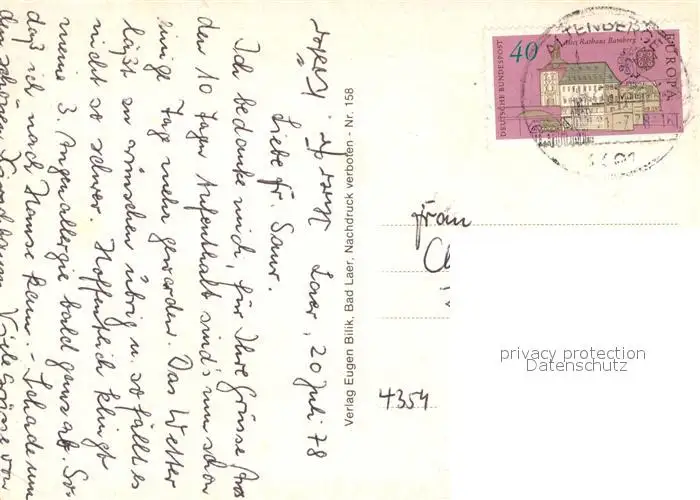 Laer, 20 Juli 78
Liebe Fr. Saur.
Ich bedanke mich, für Ihre Grüsse
den 10 Tagen Aufenthalt sind's nun schon
einige Tage mehr geworden. Das Wetter
läßt zu wünschen übrig u. so fällt es
nicht so schwer. Hoffentlich klingt
meine 3. Augenallergie bald ganz ab. So-
daß ich nach Hause kann. - Schade um
den schönen Viele Grüsse von
Verlag Eugen Bilik, Bad Laer, Nachdruck verboten - Nr. 158
DEUTSCHE BUNDESPOST
40
Altes Rathaus Bamberg
EUROPA
Frau
4354
privacy protection
Datenschutz